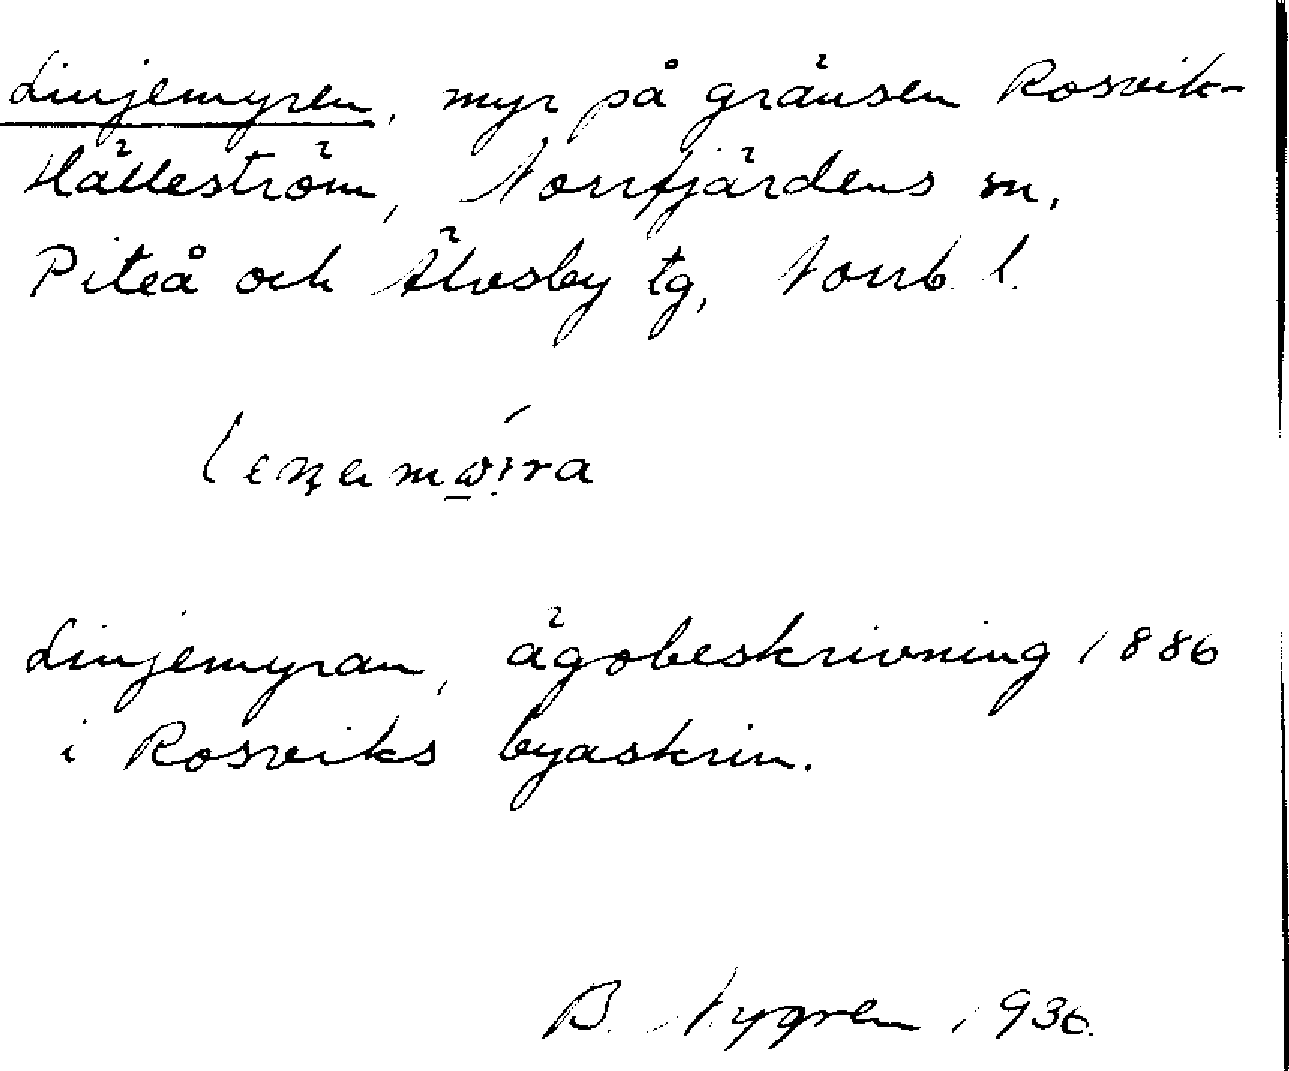 Linjemyren, myr på gränsen Rosvik-
Hälleström, Norrfjärdens sn,
Piteå och Älvsby tg, Norrb. l.
Linjemyran, ägobeskrivning 1886
i Rosviks byaskrin.
B. Nygren 1936.